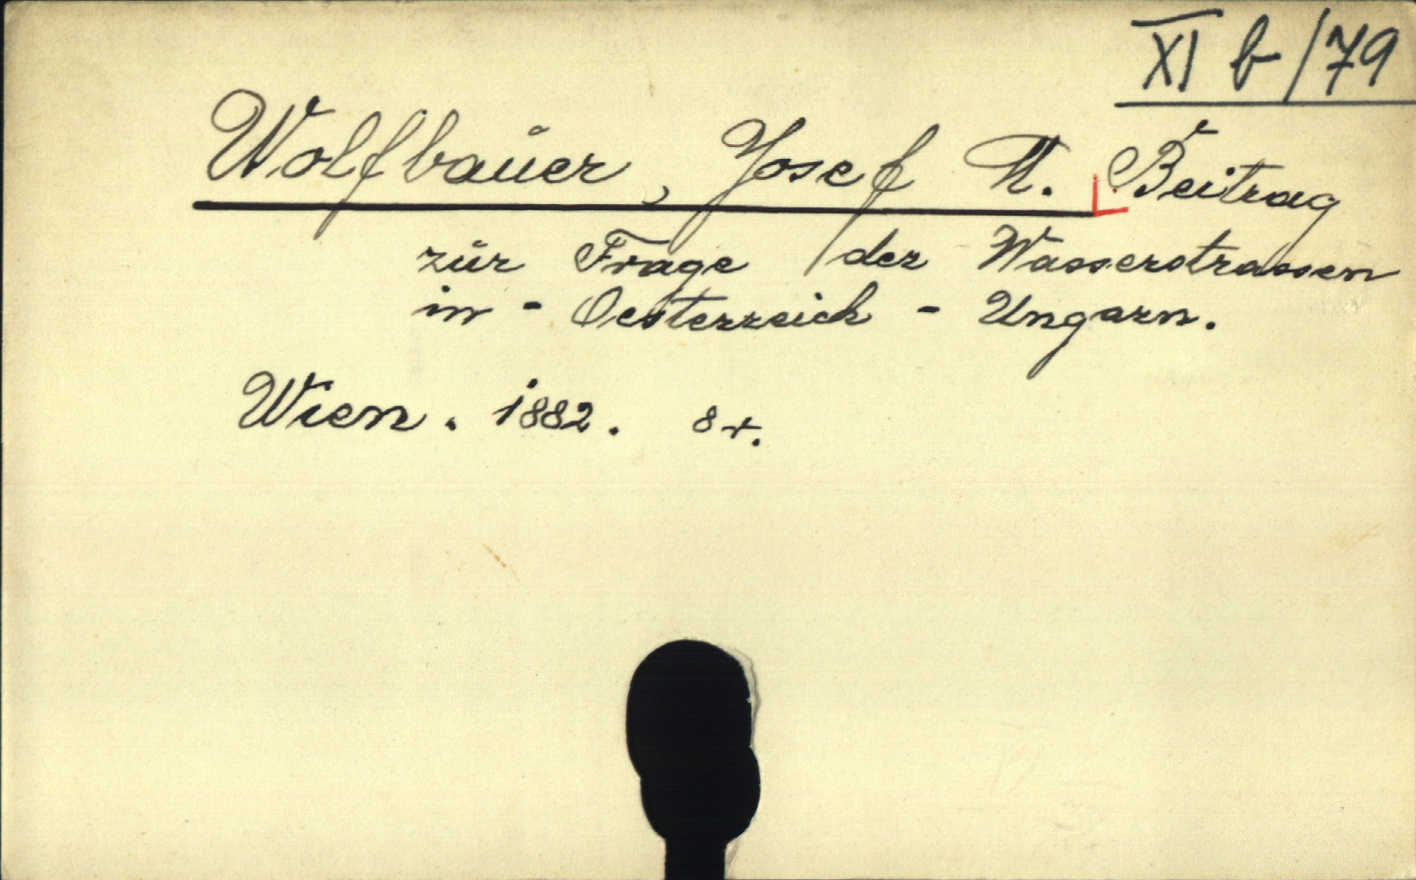 XI b/79
Wolfbauer, Josef A. Beitrag
zur Frage der Wasserstrassen
in - Oesterreich - Ungarn.
Wien. 1882. 8+.